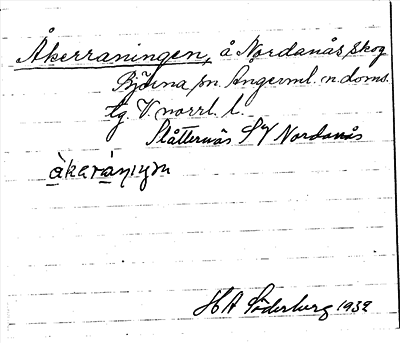 Åkerraningen, å Nordanås skog
Björna sn. Ångerml. n. doms.
tg. V. norrl. l.
Slåtternäs SV Nordanås
àkeràniŋen
HA Söderberg 1932